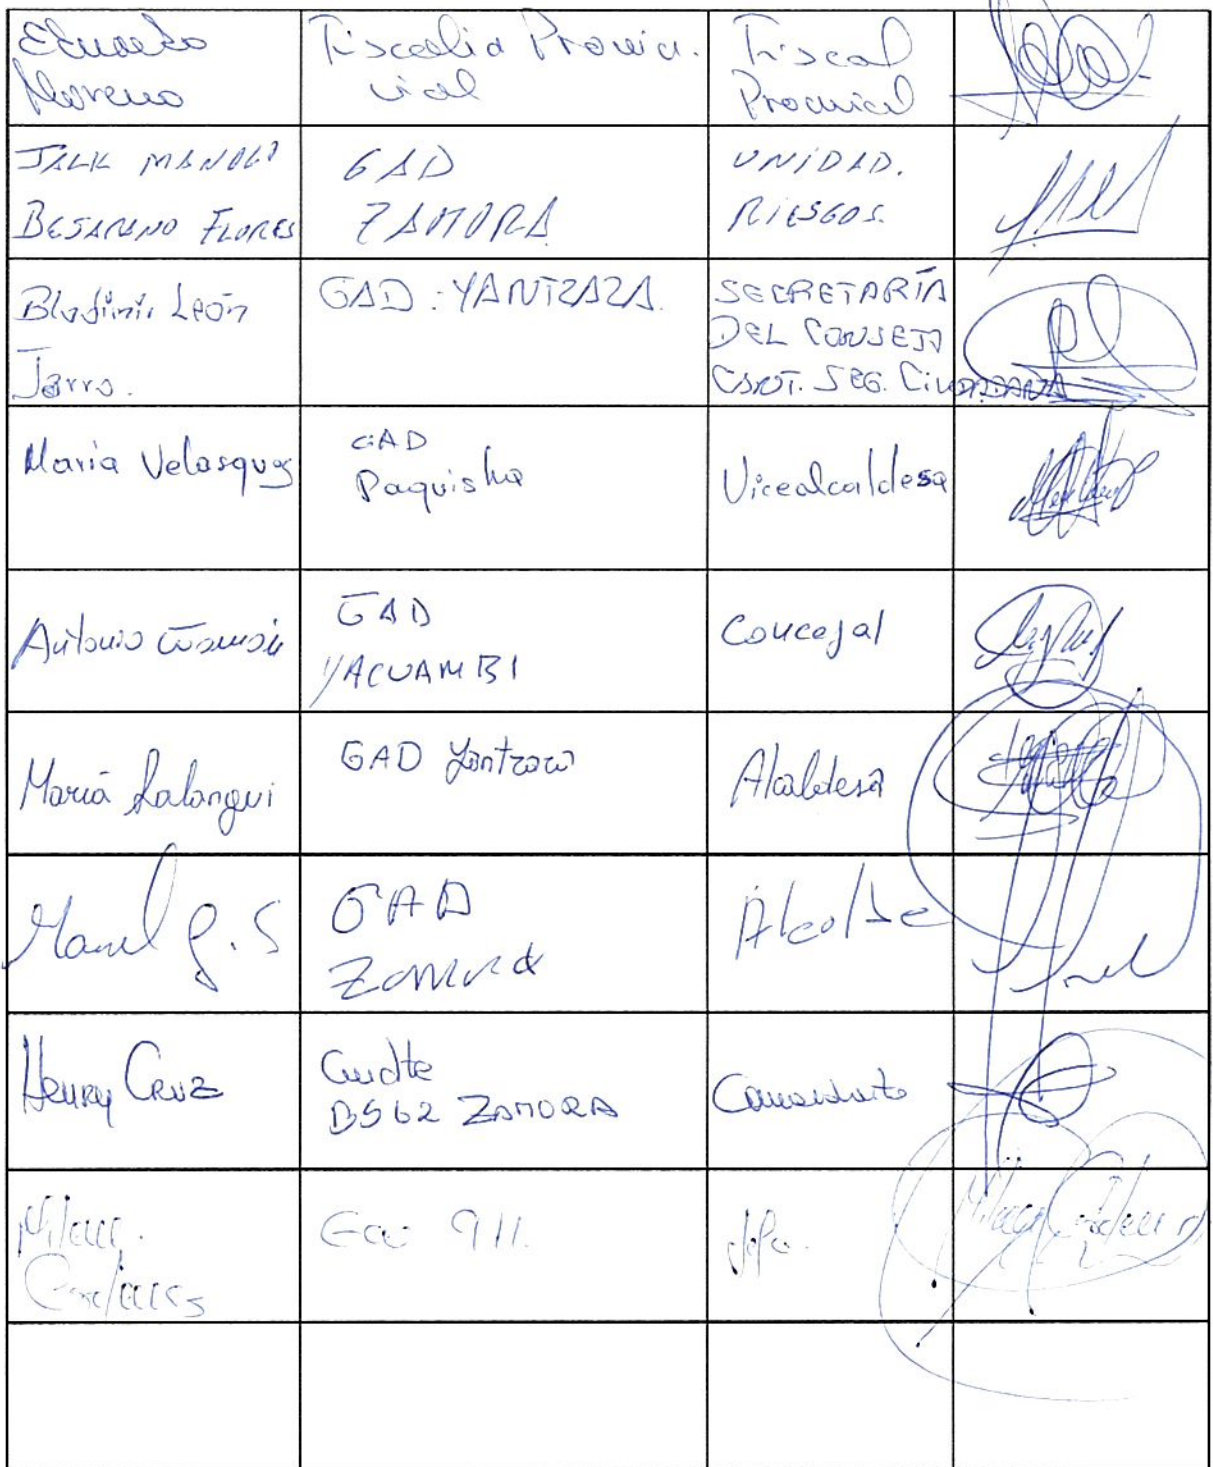 Eduardo
Moreno
Fiscalia Provin.
cial
Fiscal
Provincial
JALK MANOLO
BEJARANO FLORES
GAD
ZAMORA
UNIDAD.
RIESGOS.
Bladimir León
Jarro.
GAD: YANTZAZA.
SECRETARÍA
DEL CONSEJO
CANT. SEG. CIUDADANA
Maria Velasquez
GAD
Paquisha
Vicealcaldesa
Antonio Guamán
GAD
YACUAMBI
Concejal
María Lalangui
GAD Yantzaza
Alcaldesa
Manuel g. S
GAD
Zamora
Alcalde
Henry CRUZ
Cmdte
BS62 ZAMORA
Comandante
Milena
Cardenas
Ecu 911.
Jefa.
Milena Cardenas